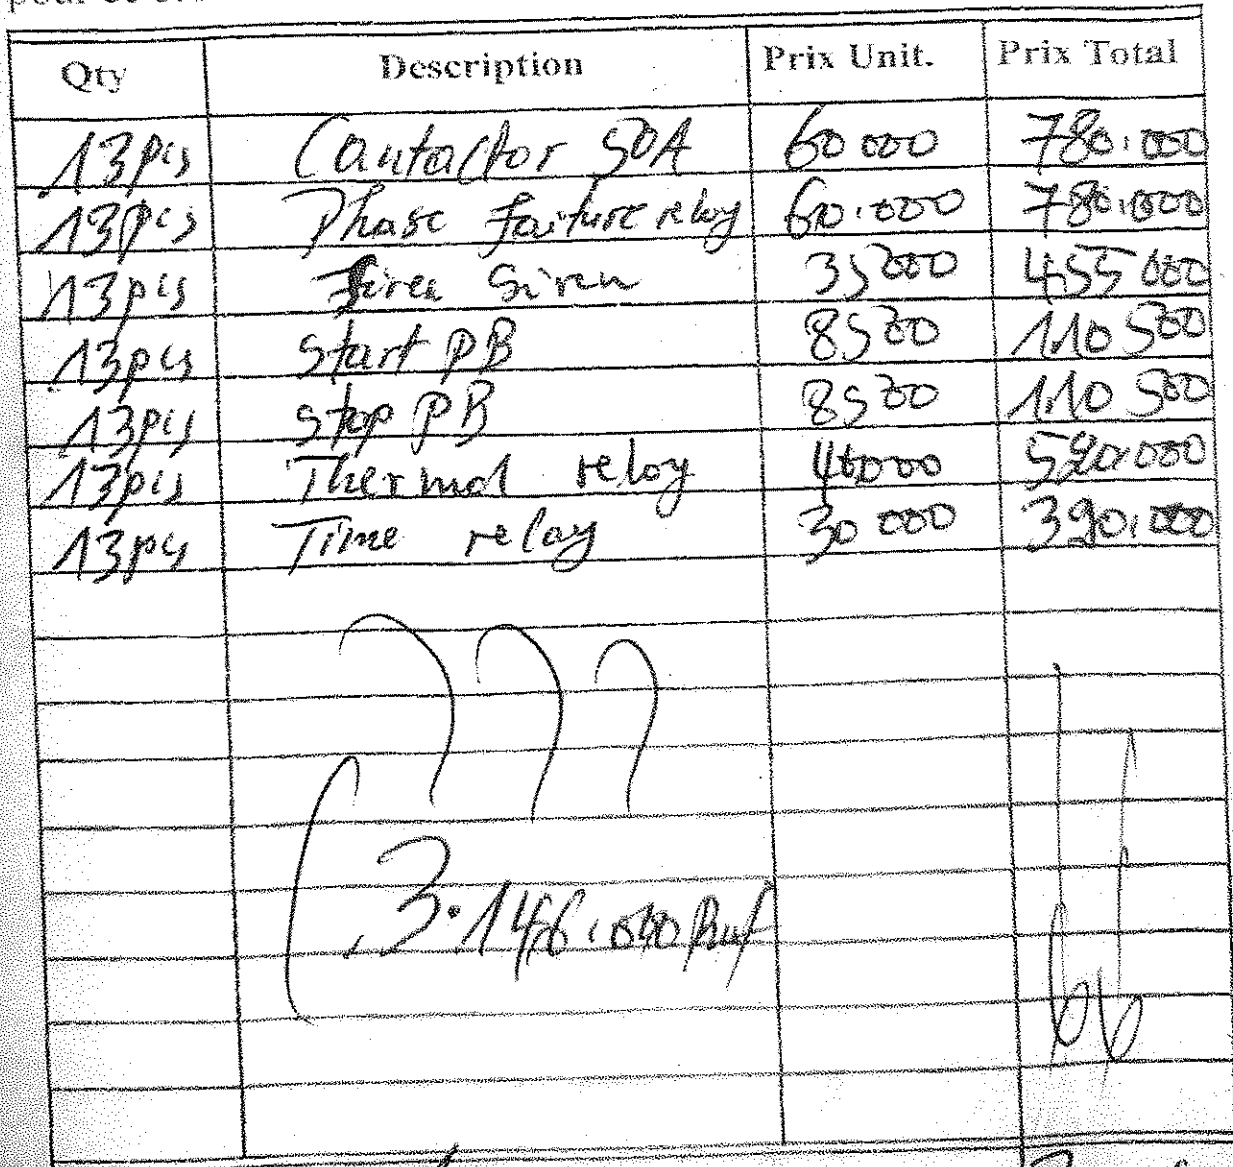 Qty Description Prix Unit. Prix Total
13pcs Contactor 50A 60 000 780.000
13pcs Phase failure reloy 60.000 780.000
13pcs Siren 35000 455 000
13pcs Start PB 8500 110 500
13pcs Stop PB 8500 110 500
13pcs Thermol reloy 40000 520.000
13pcs Time relay 30 000 390.000
3.146.000 Rwf